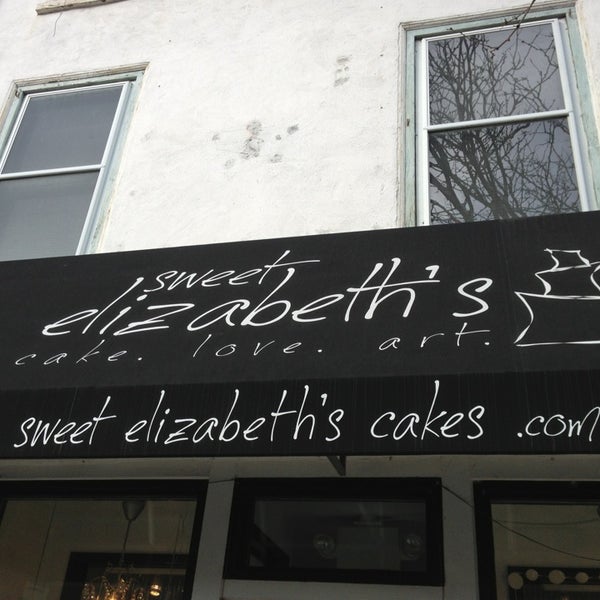 sweet
elizabeth's
cake. love. art.
sweet elizabeth's cakes .com